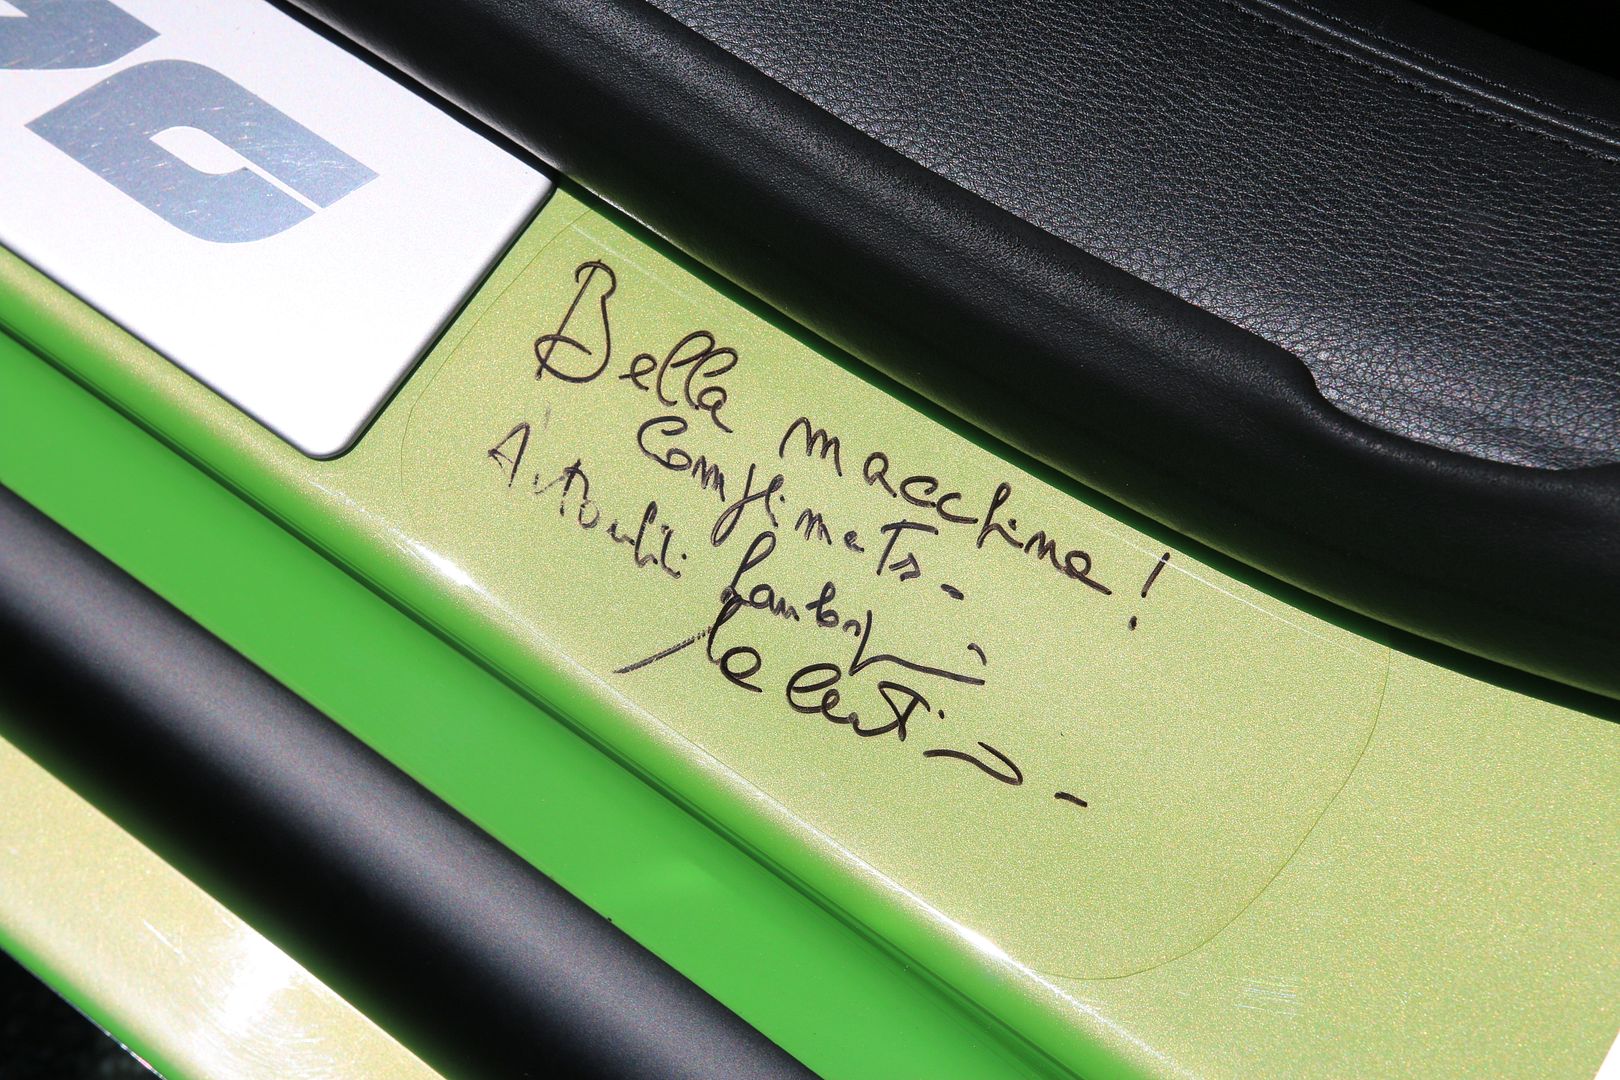 Bella macchina!
Complimenti -
Automobili Lamborghini
Valentino -